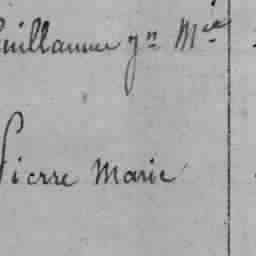 Guillaume yn Mie
Pierre Marie